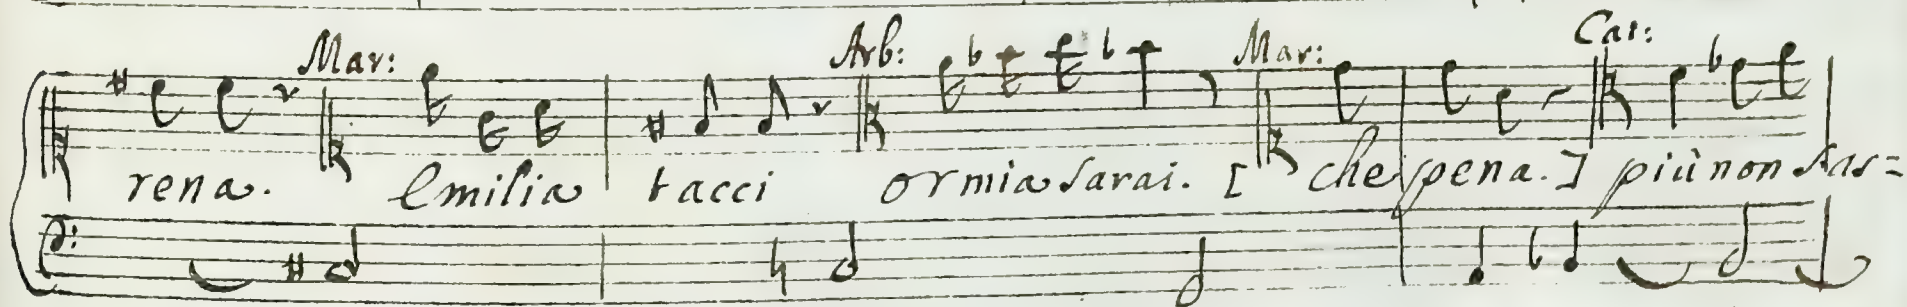 Mar: Arb: Mar: Cat:
rena. Emilia tacci or mia sarai. [ che pena. ] più non